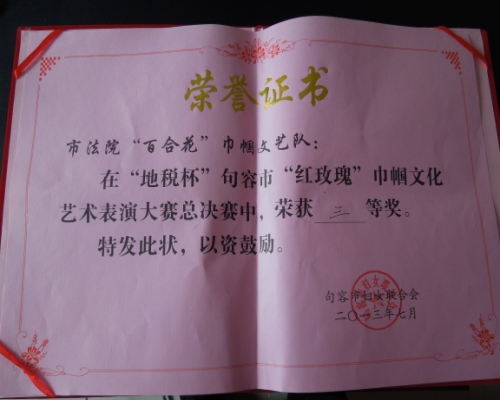 荣誉证书
市法院“百合花”巾帼文艺队：
在“地税杯”句容市“红玫瑰”巾帼文化
艺术表演大赛总决赛中，荣获 三 等奖。
特发此状，以资鼓励。
句容市妇女联合会
二〇一三年七月